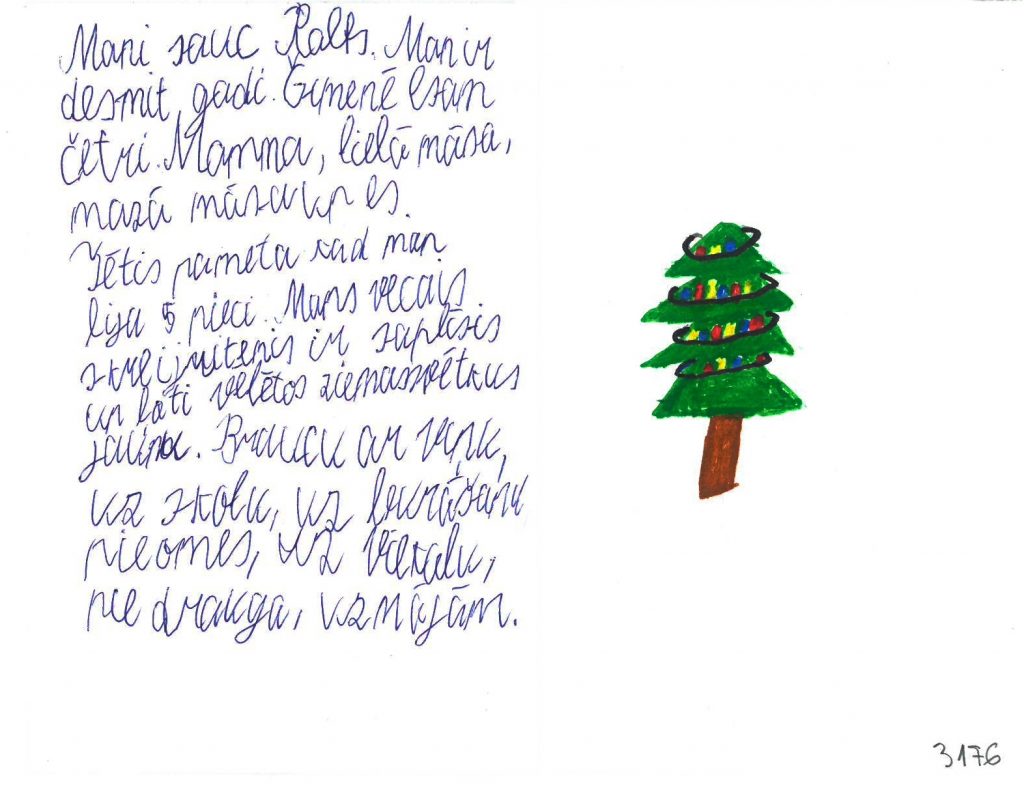 Mani sauc Ralfs. Man ir
desmit gadi. Ģimenē esam
četri. Mamma, lielā māsa,
mazā māsa un es.
Tētis pameta kad man
bija 5 pieci. Mans vecais
skrejritenis ir saplīsis
un ļoti vēlētos ziemassvētkus
jaunu. Braucu ar viņu,
uz skolu, uz
pie omes, uz veikalu,
pie drauga, uz mājām.
3176